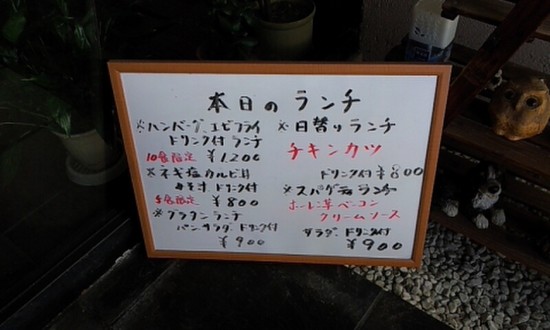 本日のランチ
※ハンバーグ、エビフライ
ドリンク付 ランチ
10食限定 ¥1,200
※ネギ塩カルビ丼
みそ汁 ドリンク付
5食限定 ¥800
※グラタンランチ
パン サラダ、ドリンク付
¥900
※日替りランチ
チキンカツ
ドリンク付 ¥800
※スパゲティランチ
ホーレン草ベーコン
クリームソース
サラダ、ドリンク付
¥900